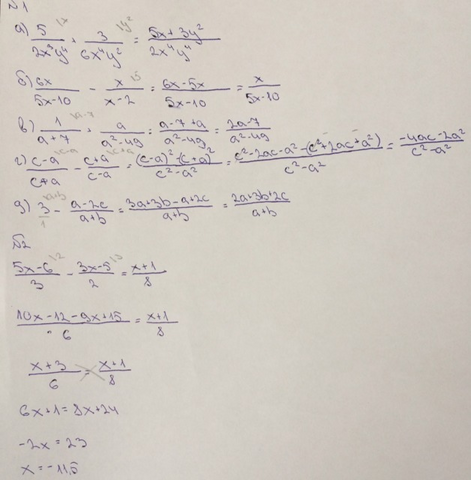 №1
а) 5/2x⁴y⁴ + 3/6x⁴y² = 5x+3y²/2x⁴y⁴
б) 6x/5x-10 - x/x-2 = 6x-5x/5x-10 = x/5x-10
в) 1/a+7 + a/a²-49 = a-7+a/a²-49 = 2a-7/a²-49
г) c-a/c+a - c+a/c-a = (c-a)²-(c+a)²/c²-a² = c²-2ac-a²-(c²+2ac+a²)/c²-a² = -4ac-2a²/c²-a²
д) 3/1 - a-2c/a+b = 3a+3b-a+2c/a+b = 2a+3b+2c/a+b
№2
5x-6/3 - 3x-5/2 = x+1/8
10x-12-9x+15/6 = x+1/8
x+3/6 = x+1/8
6x+1=8x+24
-2x=23
x=-11,5